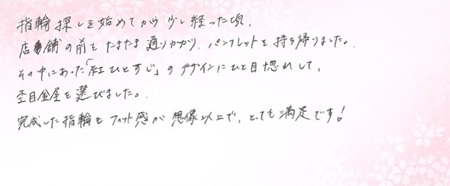 指輪探しを始めてから少し経った頃、
店舗の前をたまたま通りかかり、パンフレットを持ち帰りました。
その中にあった「紅ひとすじ」のデザインにひと目惚れして、
杢目金屋を選びました。
完成した指輪もフィット感が想像以上で、とても満足です！